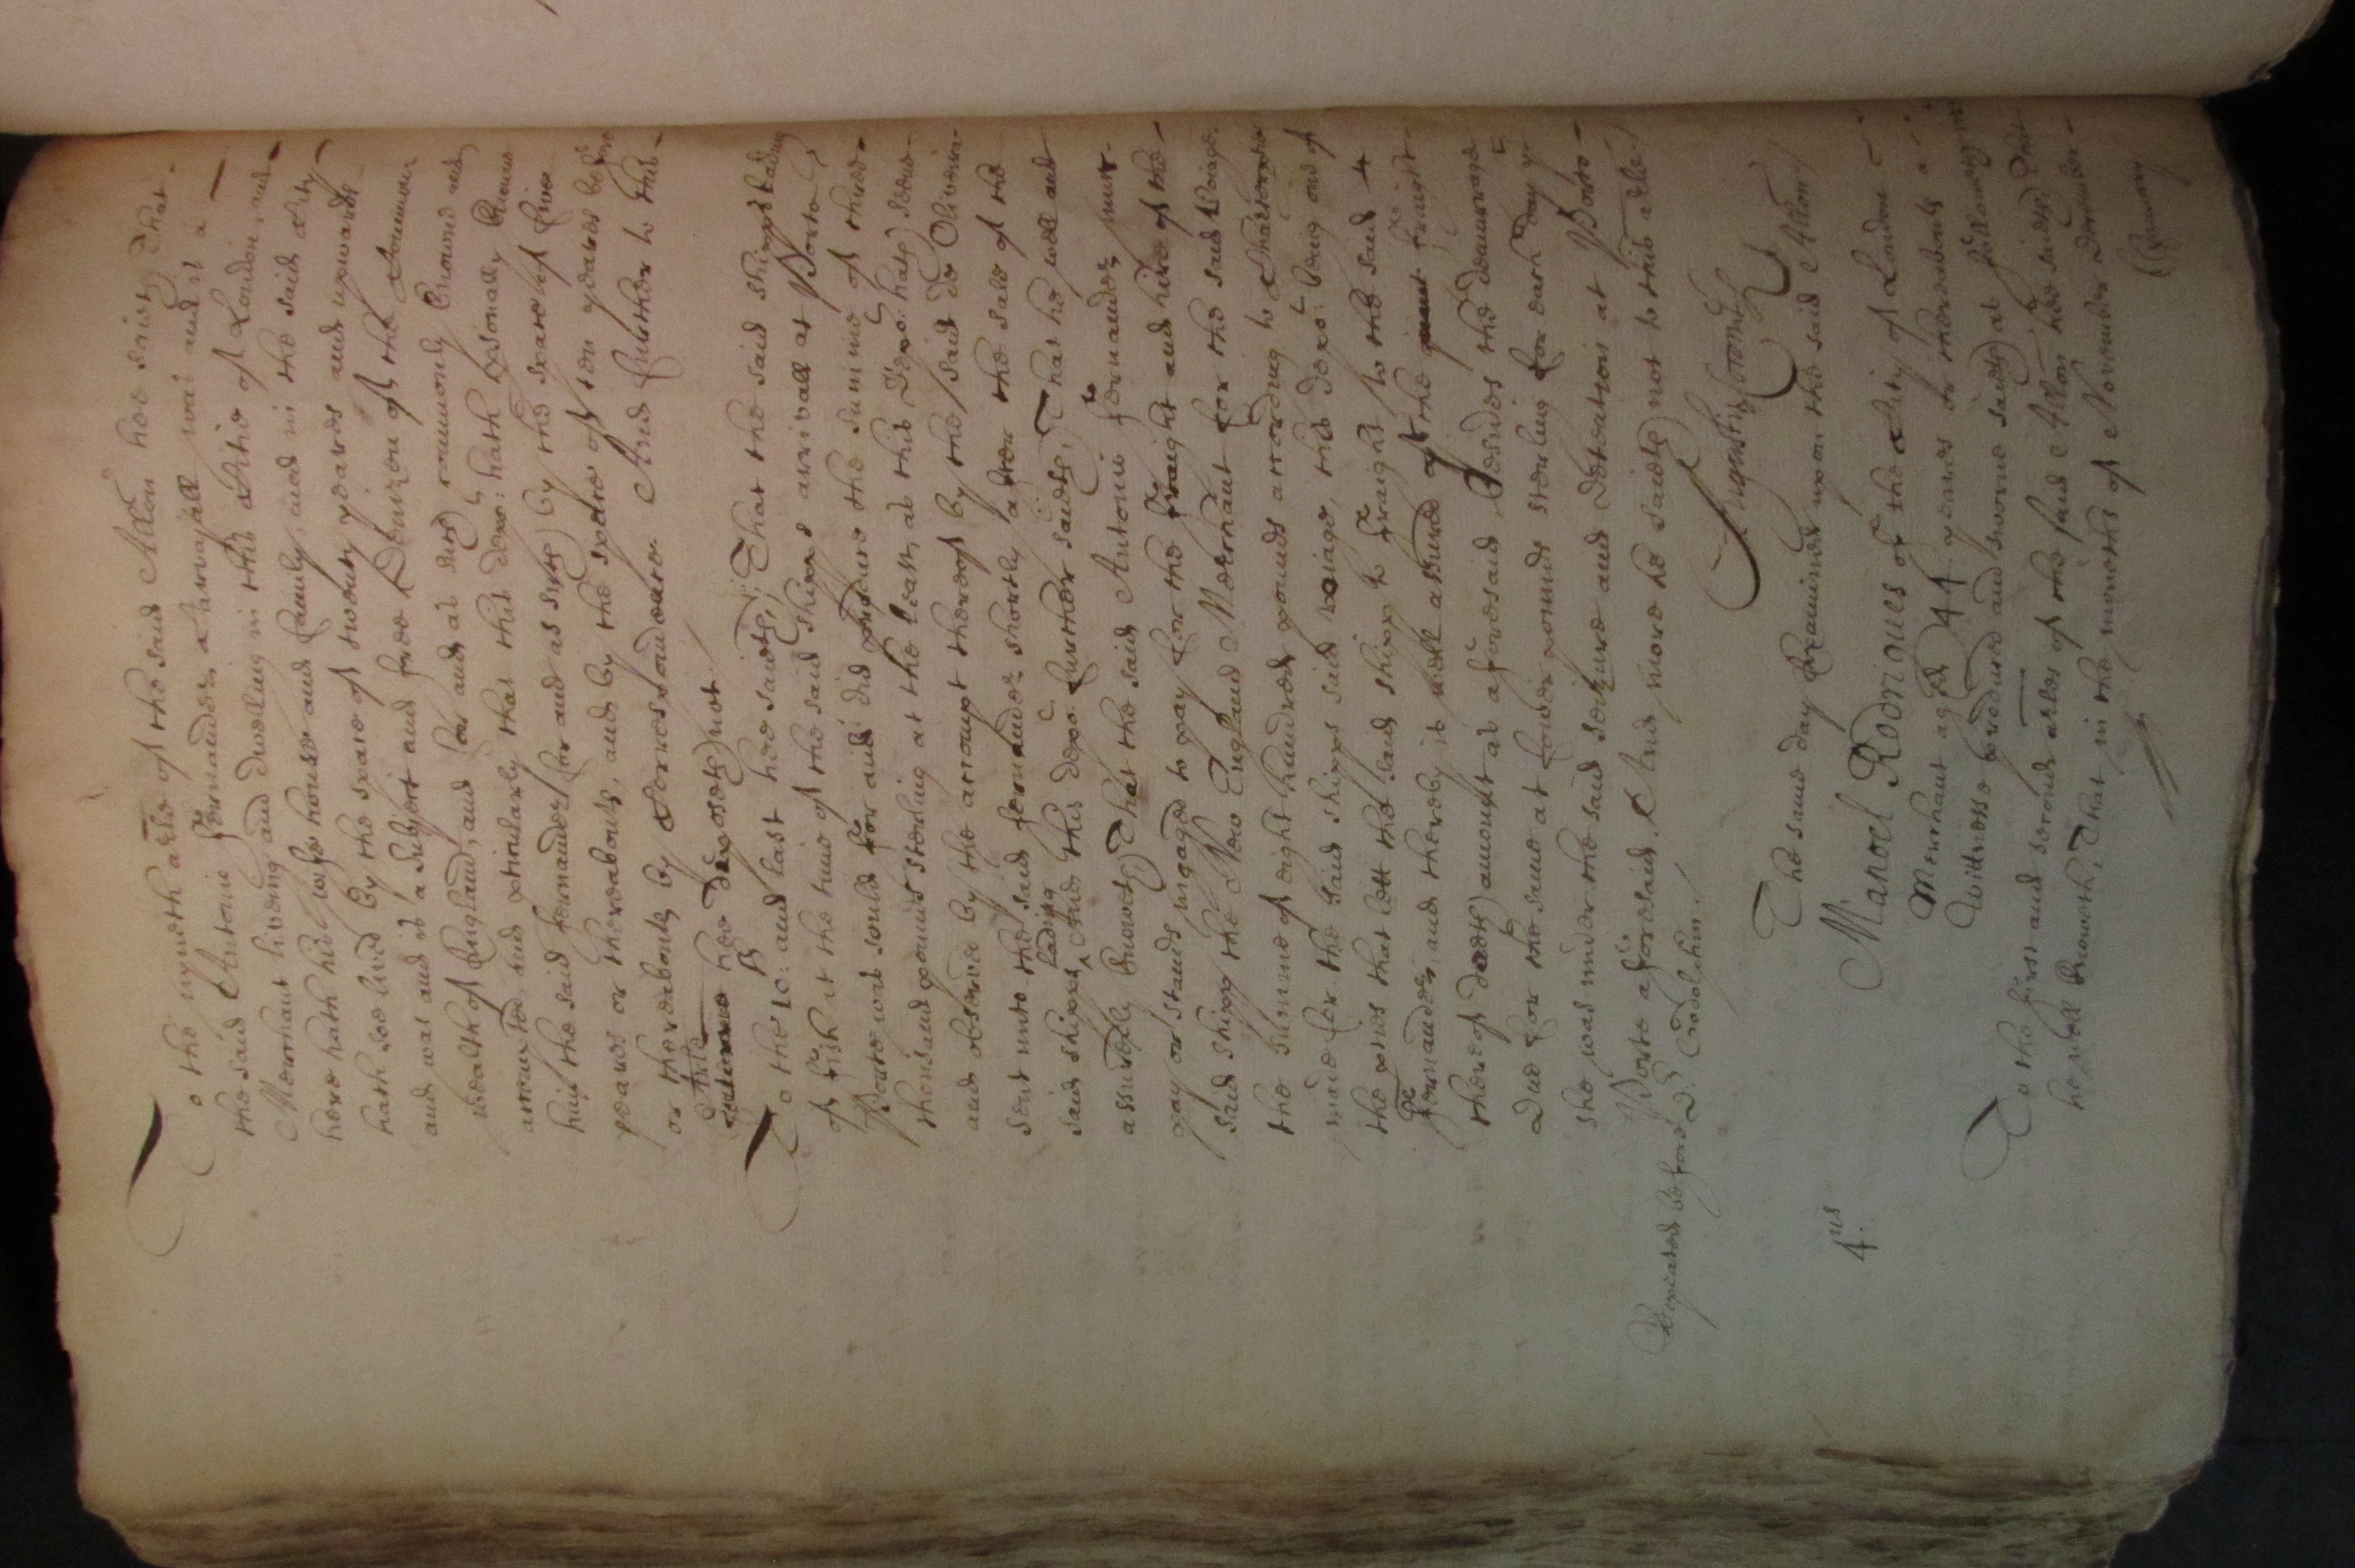 To the nyneth arle of the said Allon hee saieth That
the said Antonio ffernandez Carvajall was and is a
Merchant living and dwelling in this Citie of London, and
here hath his whole house and family, and in the said City
hath soe lived by the space of twenty yeares and upwards
and was and is a subject and free Denizen of the Common
wealth of England, and for and as such commonly knowne and
accounted, and perticularly that this depo: hath personally knowne
him the said Fernandez (for and as such) by the space of five
yeares or thereabouts, and by the space of ten yeares before
or thereabouts by Correspondence. And further to this
Arle hee deposeth not./
To the 10: and last hee saieth, That the said shipps lading
of fish at the time of the said shipps arrivall at Porto
Porto was sould for and did produce the summe of three
thousand pounds sterling at the least, as this Depo: hath seene
and observed by the accompt thereof by the said de Oliveira
sent unto the said fernandez shortly after the sale of the
said shipps lading, And this depo: further saieth, That he well and
assuredly knoweth, That the said Antonio fernandez must
pay or stands ingaged to pay for the fraight and hire of the
said shipp the New England Merchant for the said Voiage
the summe of eight hundred pounds according to Charterpartie
made for the said shipps said voiage, this depo: being one of
the pties that lett the said shipp to fraight to the said
ffernandez, and thereby is well assured of the fraight
thereof doeth amount as aforesaid besides the demurrage
due for the same at fower pounds sterling for each day yt
she was under the said seizure and detention at Porto
Porto aforesaid. And more he saieth not to this arle./
Repeated before Dr. Godolphin./
Augustin Coronel
The same day Examined upon the said Allon
4us
Manoel Rodrigues of the Citty of London
Merchant aged 44 yeares or thereabouts a
Wittnesse produced and sworne saieth as followeth, vizt
To the first and second arles of the said Allon he saieth That
he well knoweth, That in the moneths of November December
January